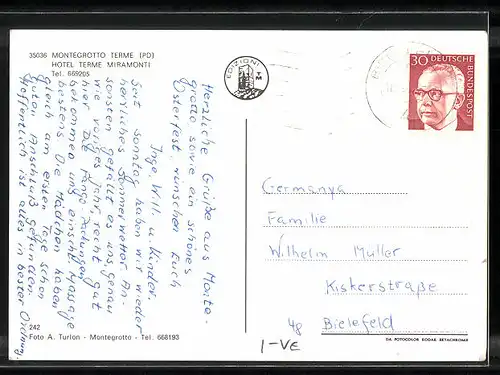 35036 MONTEGROTTO TERME (PD)
HOTEL TERME MIRAMONTI
Tel. 669205
EDIZIONI
TM
30 DEUTSCHE
BUNDESPOST
Herzliche Grüße aus Monte-
grotto sowie ein schönes
Osterfest, wünschen Euch
Inge, Will. u. Kinder.
Seit Sonntag haben wir wieder
herrliches Sommerwetter. An-
sonsten gefällt es uns genau
wie voriges Jahr, recht gut
hier. Die Packungen
bekommen uns einschl. Massage
bestens. Die Mädchen haben
gleich am ersten Tage schon
guten Anschluß gefunden.
Hoffentlich ist alles in bester Ordnung.
Germanya
Familie
Wilhelm Müller
Kiskerstraße
48 Bielefeld
I-VE
242
Foto A. Turlon - Montegrotto - Tel. 668193
DA FOTOCOLOR KODAK EKTACHROME